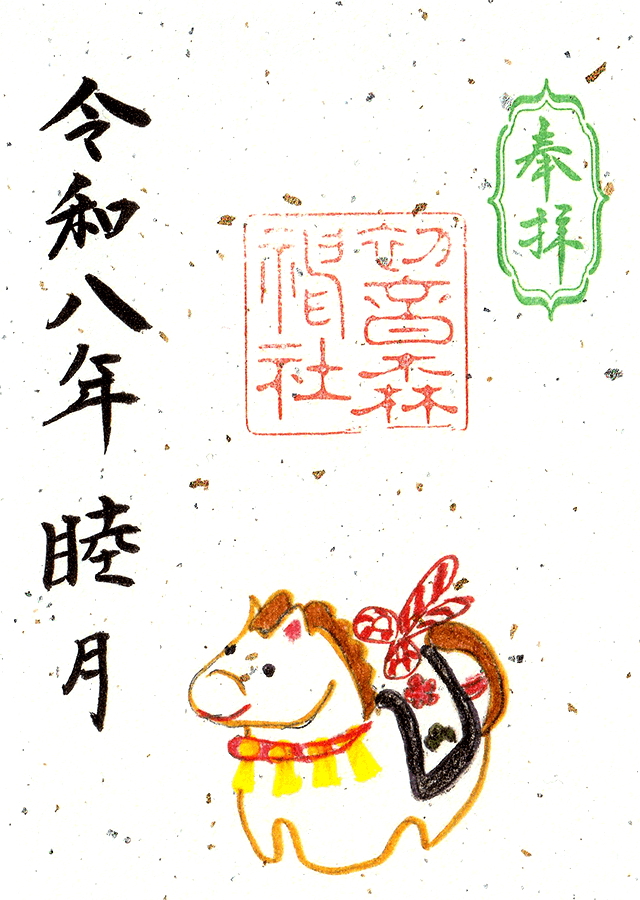 奉拝
初音森
神社
令和八年 睦月